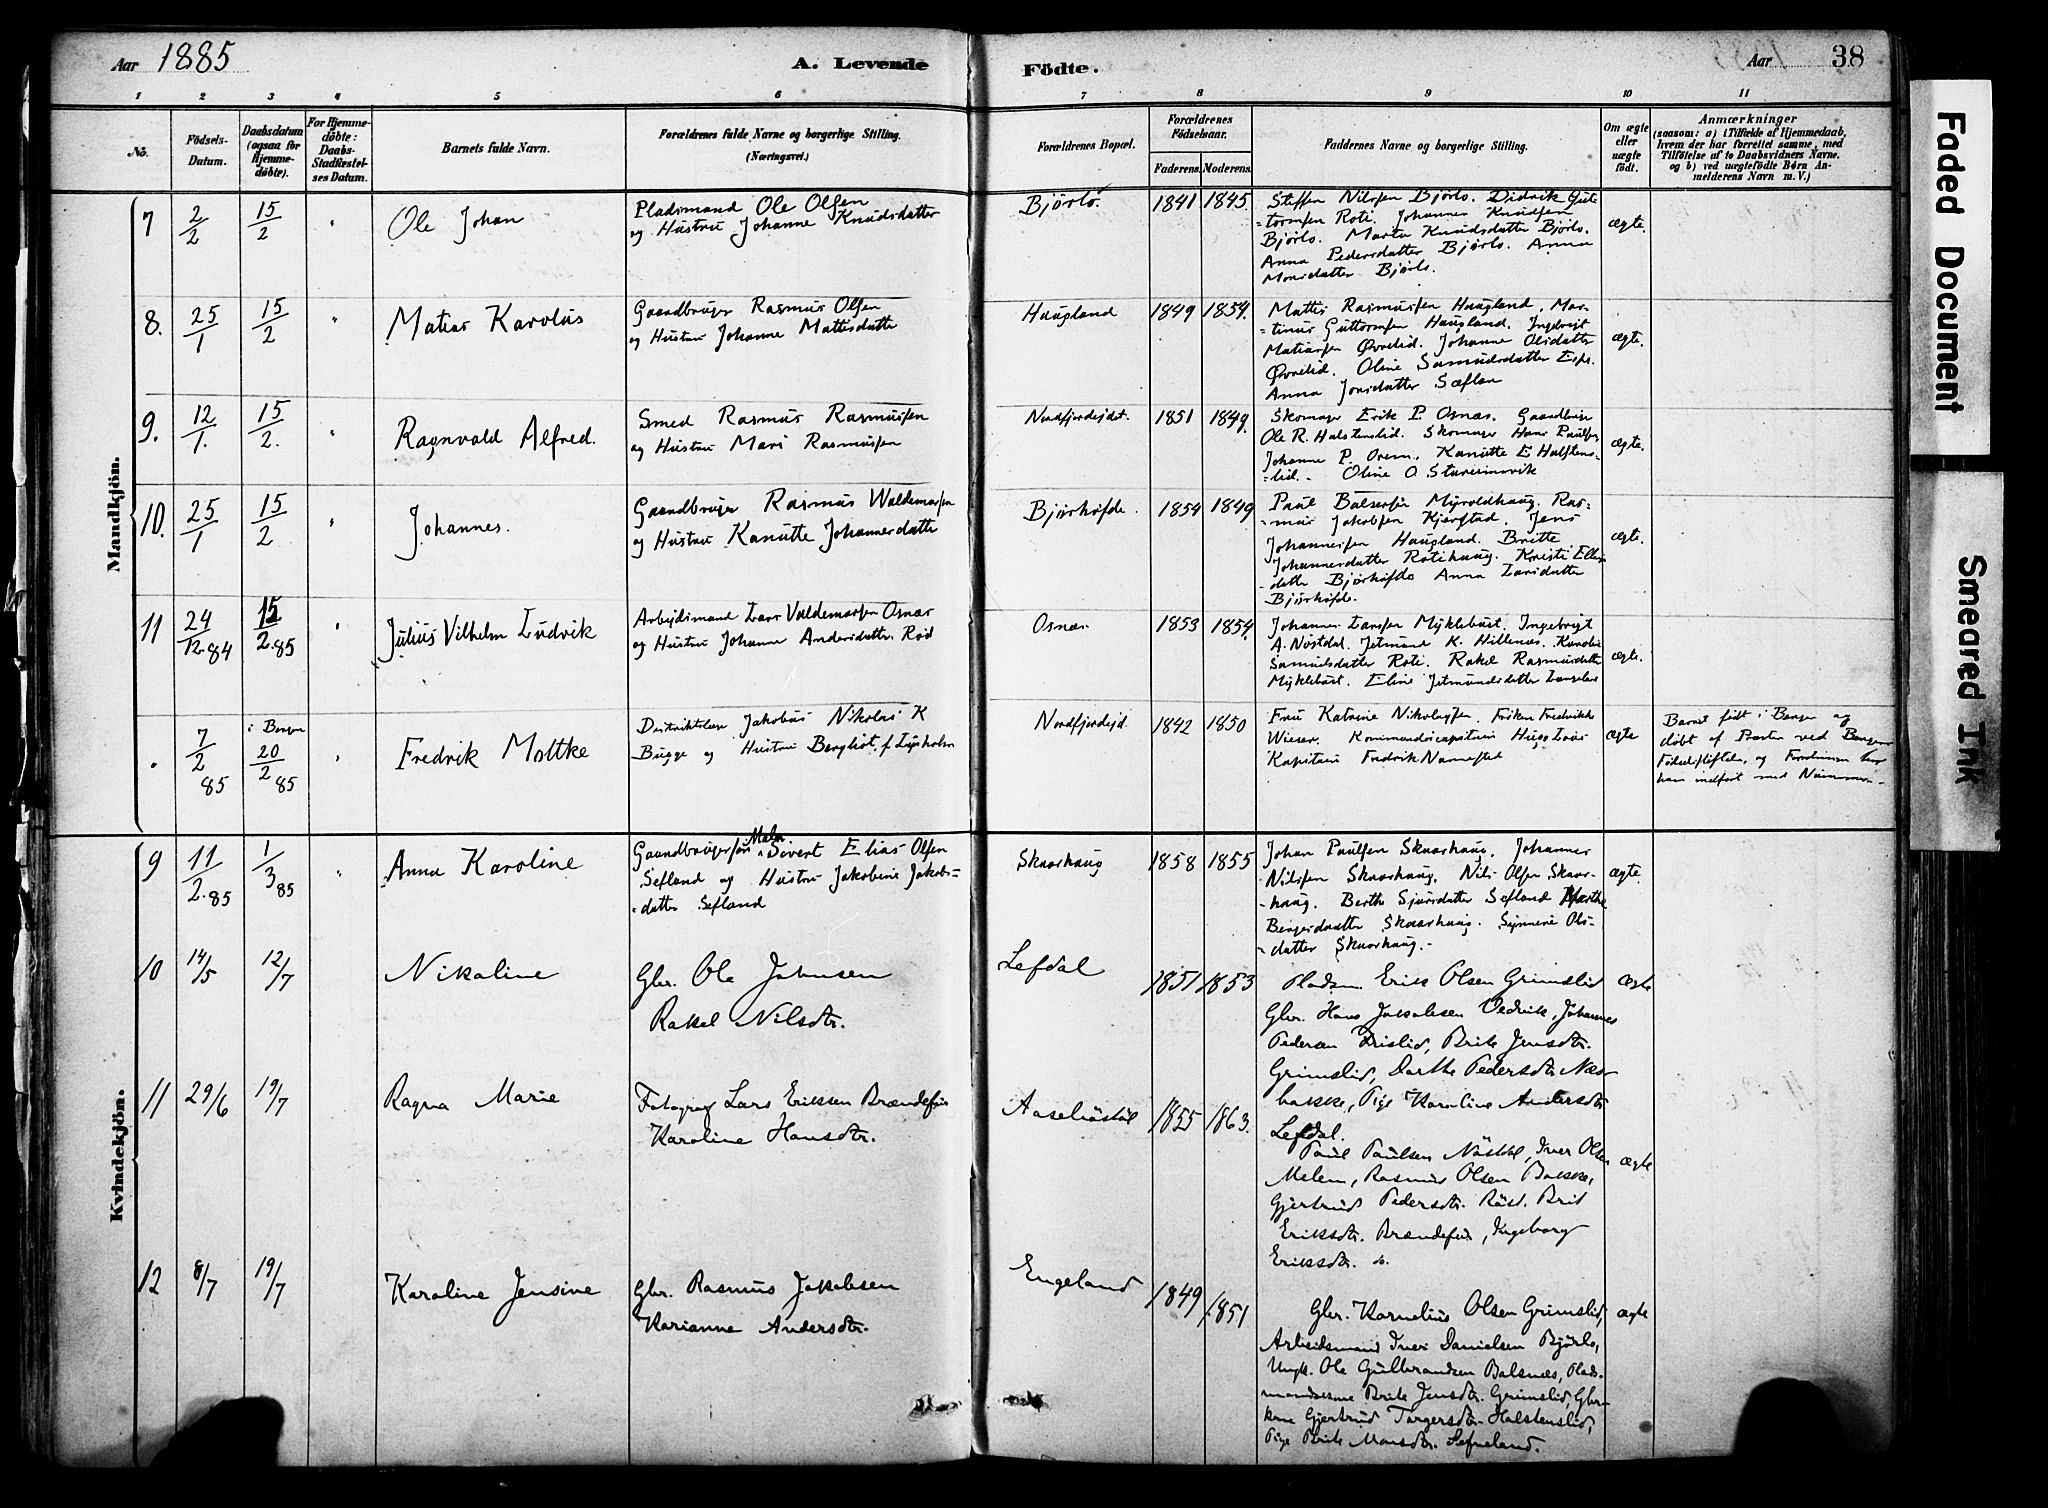 Aar 1885
A. Levende
Födte.
Aar
38
1 2 3 4 5 6 7 8 9 10 11
No.
Födsels-
Datum.
Daabsdatum
(ogsaa for
Hjemme-
döbte).
For Hjemme-
döbte:
Daabs-
Stadfæstel-
ses Datum.
Barnets fulde Navn.
Forældrenes fulde Navne og borgerlige Stilling.
(Næringsvei.)
Forældrenes Bopæl.
Forældrenes
Födselsaar.
Faderens. Moderens.
Faddernes Navne og borgerlige Stilling.
Om ægte
eller
uægte
födt.
Anmærkninger
(saasom: a) i Tilfælde af Hjemmedaab,
hvem der har forrettet samme, med
Tilföielse af to Daabsvidners Navne,
og b) ved uægtefödte Börn An-
melderens Navn m. V.)
Mandkjön.
7 2/2 15/2 " Ole Johan
Pladsmand Ole Olsen
og Hustru Johanne Knudsdatter
Bjørlo. 1841 1845.
Steffen Nilssen Bjørlo. Didrik Gut-
=tormsen Roti. Johannes Knudsen
Bjørlo. Marta Knudsdatter Bjørlo.
Anna Pedersdatter Bjørlo. Anna
Monsdatter Bjørlo.
ægte.
8. 25/1 15/2 " Matias Karolus
Gaardbruger Rasmus Olsen
og Hustru Johanne Mattisdatter
Haugland 1849 1854.
Mattis Rasmussen Haugland. Mar-
=tinus Guttormsen Haugland. Ingebrigt
Matiassen Øvrelid. Johanne Olsdatter
Øvrelid. Oline Samuelsdatter Espe.
Anna Jonsdatter Sæflan
ægte.
9. 12/1. 15/2. " Ragnvald Alfred.
Smed Rasmus Rasmussen
og Hustru Mari Rasmussen
Nordfjordejdet. 1851 1849.
Skomager Erik P. Osnæs. Gaardbruger
Ole R. Halstenslid. Skomager Hans Paulsen
Johanne P. Orem. Kanutte E Halstens-
=lid. Oline O.
ægte.
10. 25/1 15/2 " Johannes.
Gaardbruger Rasmus Waldemarsen
og Hustru Kanutte Johannesdatter
Bjørhofde. 1854 1849
Paul Balsersen Myroldhaug. Ras-
=mus Jakobsen Kjerstad. Jens
Johannessen Haugland. Britte
Johannesdatter Rotihaug. Kristi Ellis
datter Bjørhofde Anna Larsdatter
Bjørhofde.
ægte.
11 24/12.84 15/2.85 " Julius Vilhelm Ludvik
Arbejdsmand Lars Valdemarsen Osnæs
og Hustru Johanne Andersdatter Rød
Osnæs. 1853 1854.
Johannes Larssen Myklebust. Ingebrigt
A. Nøstdal. Jetmund K. Hillenes. Karolie
Samuelsdatter Roti. Rakel Rasmusdatter
Myklebust. Eline Jetmundsdatter
ægte.
. 7/2 85 i Bergen 20/2 85 " Fredrik Moltke
Distriktslæge Jakobus Nikolas K
Bugge og Hustru Bergliot f. Lysholm
Nordfjordejd. 1842 1850
Fru Katrine Nikolaysen. Frøken Fredrikke
Wieser. Kommandørcapitain Hugo
Kapitain Fredrik
ægte
Barnet født i Bergen og
døbt af Præsten ved Bergens
Fødselsstiftelse, og Forældrene har
ham indført med Nummer.
Kvindekjön.
9 11/2.85 1/3 85 " Anna Karoline
Gaardbrugersøn Mads Sivert Elias Olsen
Sefland og Hustru Jakobine Jakobs=
=datter Sefland
Skaarhaug 1858 1855
Johan Paulsen Skaarhaug. Johannes
Nilssen Skaarhaug. Nils Olsen Skaar-
-haug. Berthe Sjursdatter Sefland Marthe
Bergesdatter Skaarhaug. Synneve Ols-
=datter Skaarhaug.-
ægte.
10 14/5 12/7 Nikoline
Gbr. Ole Johnsen
Rakel Nilsdtr.
Lefdal 1851 1853
Pladsm. Erik Olsen Grimslid
Gbr. Hans Jakobsen Vedvik, Johannes
Pedersen Frislid, Brite Jensdtr.
Grimslid, Dorthe Pedersdtr. Næs-
bakke, Pige Karoline Andersdtr.
Lefdal.
ægte
11 29/6 19/7 Ragna Marie
Fotograf Lars Eriksen Brændefur
Karoline Hansdtr.
1855 1863.
Paul Paulsen Nöstdal, Iver Olsen
Melem, Rasmus Olsen Bakke,
Gjertrud Pedersdtr. Röst. Brit
Eriksdtr. Brændefur, Ingeborg
Eriksdtr. do.
ægte
12 8/7 19/7 Karoline Jensine
Gbr. Rasmus Jakobsen
Marianne Andersdtr.
Engeland 1849 1851
Gbr. Kornelius Olsen Grimslid,
Arbeidsmand Iver Danielsen Björlo,
Ungk. Ole Gulbrandsen Balsnes, Plads-
mandskone Brite Jensdtr. Grimslid, Gbr-
kone Gjertrud Torgersdtr. Halstenslid,
Pige Brite Monsdtr.
ægte
Faded Document
Smeared Ink